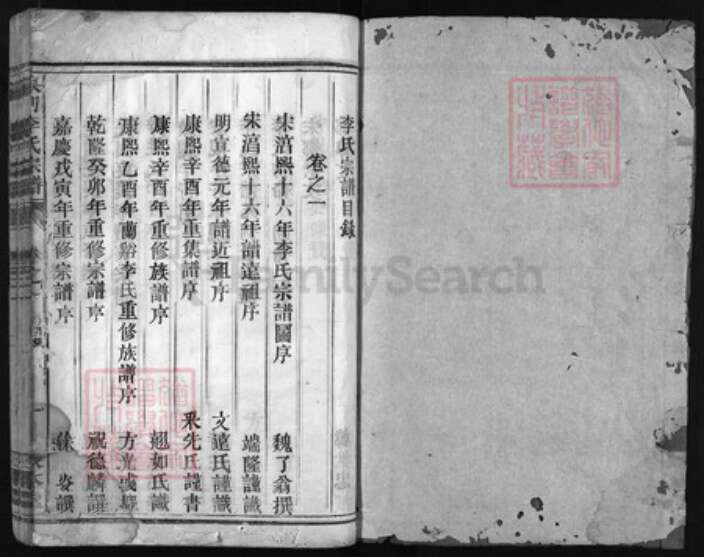 李氏宗譜目錄
卷之一
宋淳熙十六年李氏宗譜圖序 魏了翁撰
宋淳熙十六年譜遠祖序 端隆謹識
明宣德元年譜近祖序 文達氏謹識
康熙辛酉年重集譜序 釆先氏謹書
康熙辛酉年重修族譜序 翹如氏識
康熙乙酉年蘭谿李氏重修族譜序 方光
乾隆癸卯年重修宗譜序 祝德麟譔
嘉慶戊寅年重修宗譜序 姿譔
李氏宗譜
FamilySearch